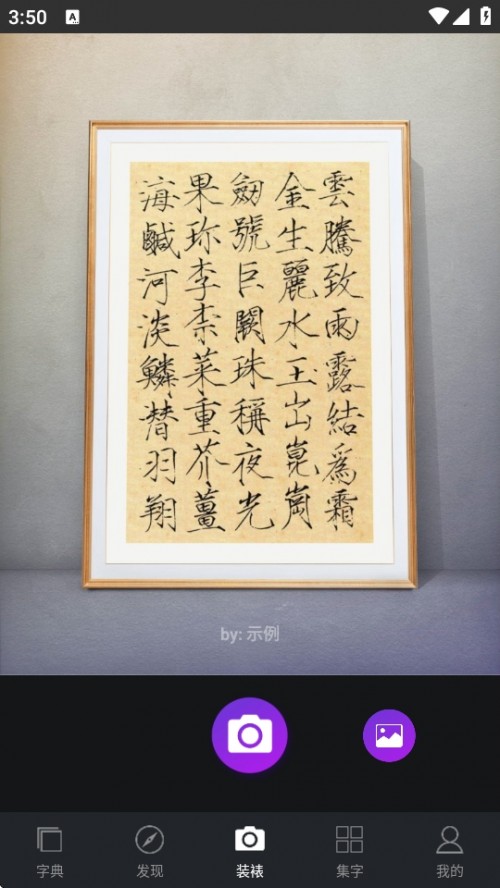 3:50
雲騰致雨露結爲霜
金生麗水玉出崑崗
劒號巨闕珠稱夜光
果珎李柰菜重芥薑
海鹹河淡鱗潛羽翔
by: 示例
字典
发现
装裱
集字
我的